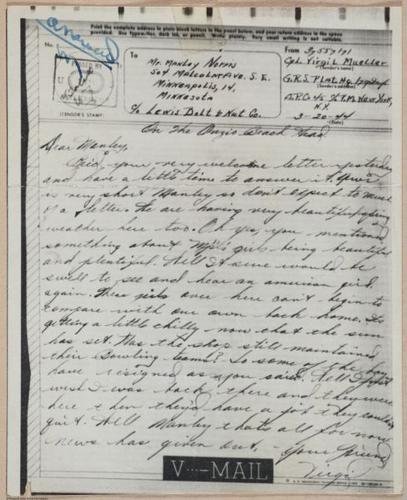 answered
Print the complete address in plain block letters in the panel below, and your return address in the space provided. Use typewriter, dark ink, or pencil. Write plainly. Very small writing is not suitable.
No.
To
From
Mr. Manley Norris
504 Malcolm Ave. S.E.
Minneapolis, 14,
Minnesota
c/o Lewis Bolt & Nut Co.
Cpl. Virgil Mueller
(Sender's name)
(Sender's address)
3-20-44
(Date)
(CENSOR'S STAMP)
On The Anzio Beach Head
Dear Manley,
your very welcome letter yesterday
and have a little time to answer it. Your
is very short Manley so don't expect to much
of a letter. We are having very beautiful
weather here too. Oh yes, you mentioned
something about girls being beautiful
and plentiful. Well I sure would be
swell to see and hear an american girl
again. These girls over here can't begin to
compare with our own back home. Its
getting a little chilly now that the sun
has set. Has the shop still maintained
their Bowling team? So some of the boys
have resigned as you said. Well I just
wish I was back there and they were
here then they'd have a job they couldn't
quit. Well Manley thats all for now
news has given out. Your friend
Virgil
V···—MAIL